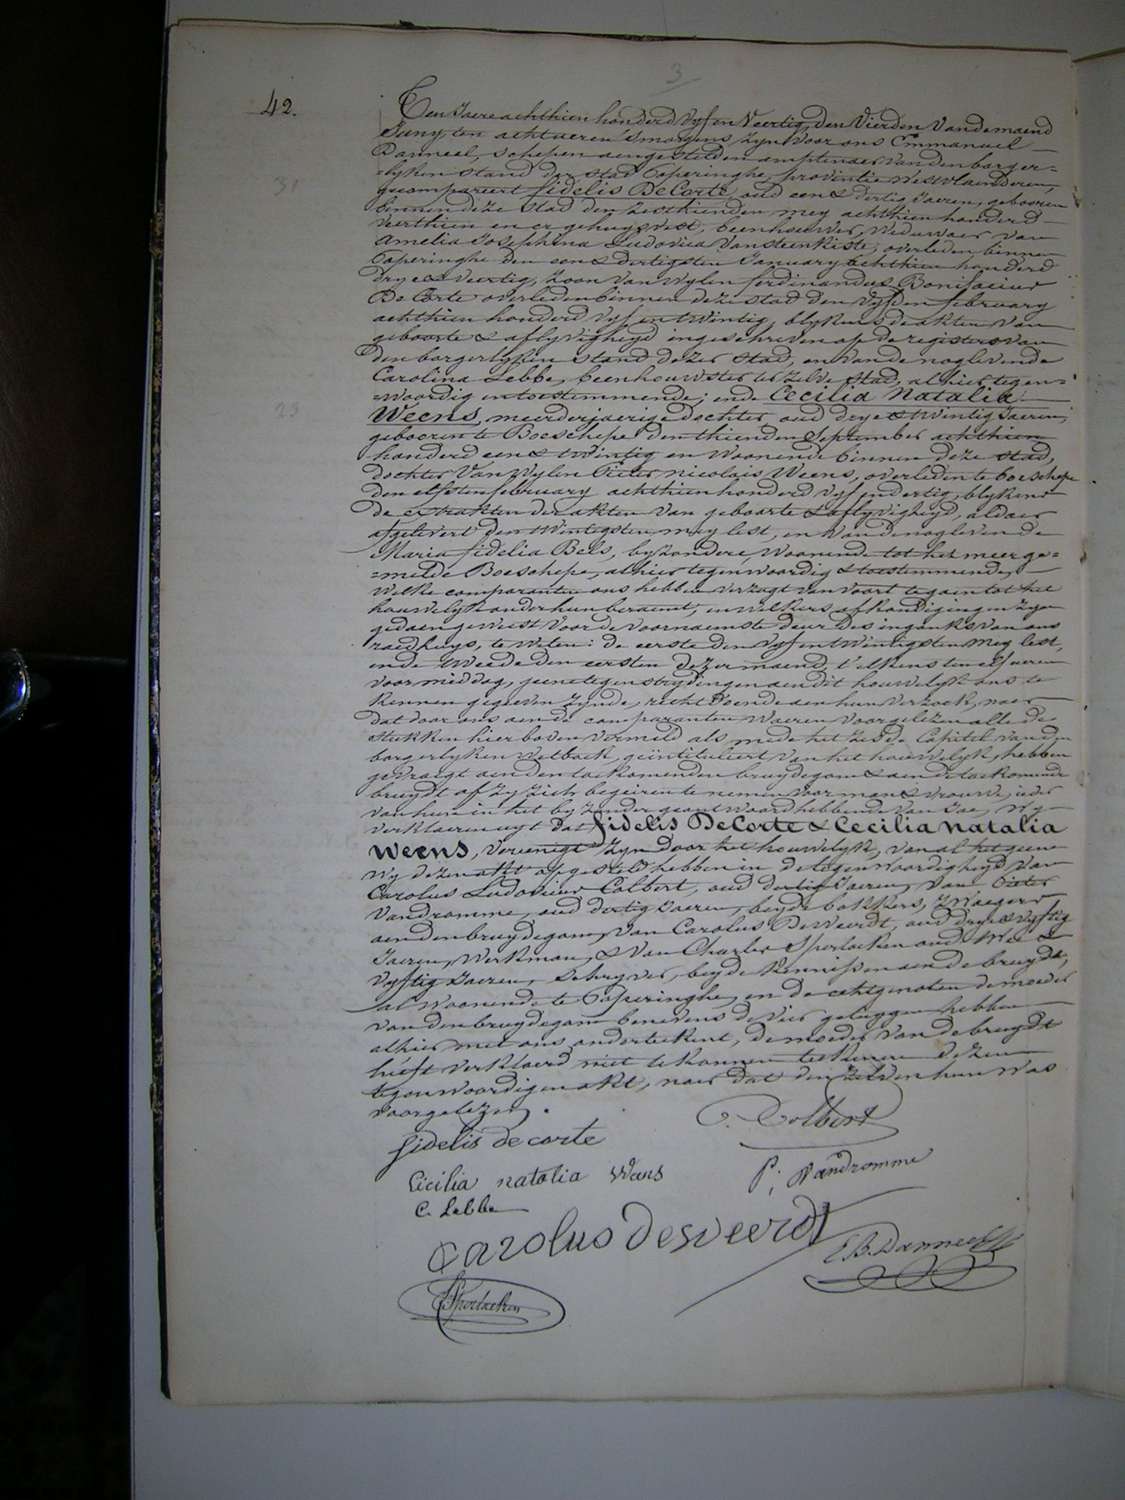 3
42.
Ten Jaere achthien honderd vyf en Veertig, den Vierden Vande maend
Juny, ten acht ueren 's morgens, zyn voor ons Emmanuel
Danneel, schepen aengestelden amptenaer van den borger-
=lyken stand der stad Poperinghe, provintie Westvlaenderen,
gecompareert fidelis DeCorte oud een & dertig Jaeren, gebooren
binnen deze stad den zesthienden mey achthien honderd
veerthien en er gehuysvest, beenhouwer, Weduwaer van
Amelia Josephina Ludovica Vansteenkiste, overleden binnen
Poperinghe den een & dertigsten January achthien honderd
drye & Veertig, zoon van Wylen ferdinandus Bonifacius
De Corte overleden binnen deze stad den Vyfden february
achthien honderd Vyf en twintig, blykens de akten van
geboorte & aflyvigheyd ingeschreven op de registers van
den borgerlyken stand dezer stad, en van de noglevende
Carolina Lebbe, beenhouwster ter zelve stad, alhier tegen=
=woordig en toestemmende; ende Cecilia Natalia
Weens, meerderjaerige dochter oud drye & twintig Jaeren,
gebooren te Boeschepe den thienden September achthien
honderd een & twintig en Woonende binnen deze stad,
dochter Van Wylen Pieter nicolaïs Weens, overleden te boeschepe
den elfsten february achthien honderd vyf en dertig, blykens
de extrakten der akten van geboorte & aflyvigheyd, aldaer
afgelevert den twintigsten mey lest, en Van de noglevende
Maria fidelia Bels, byzondere, Woonende tot het meerge=
=melde Boeschepe, alhier tegenwoordig & toestemmende,
Welke comparanten ons hebben verzogt van voort te gaen tot het
houwelyk onder hun beraemt, en welkers afkondigingen zyn
gedaen geweest voor de voornaemste deur des ingangs van ons
raedhuys, te weten: de eerste den vyf en twintigsten mey lest,
ende tweede den eersten dezer maend, t'elkens ten elf ueren
voormiddag, geene tegenstrydingen aen dit houwelyk ons te
kennen gegeven zynde, recht doende aen hun verzoek, naer
dat door ons aen de comparanten Waeren voorgelezen alle de
stukken hier boven vermeld als mede het zesde Capitel van den
borgerlyken Wetboek, geintituleert van het houwelyk, hebben
gevraegt aen den toekomenden bruydegom & aen de toekomende
bruydt of zy zich begeiren te nemen voor man & vrouwe, ieder
van hun in het byzonder geantwoord hebbende van Jae, Wy
verklaeren uyt dat fidelis DeCorte & Cecilia Natalia
Weens, Vereenigt zyn door het houwelyk, van al het geene
Wy dezen akt opgesteld hebben in de tegenwoordigheyd van
Carolus Ludovicus Colbert, oud dertig Jaeren, van Pieter
Vandromme, oud dertig Jaeren, beyde bakkers, zwaegers
aen den bruydegom, Van Carolus DeWeerdt, oud drye & vyftig
Jaeren, Werkman, & Van Charles Sperlaeken oud twee &
vyftig Jaeren, schryver, beyde kennissen aen de bruydt,
al Woonende te Poperinghe, en de echtgenoten de moeder
van den bruydegom benevens de vier getuygen hebben
alhier met ons onderteekent, de moeder van de bruydt
heeft verklaerd niet te konnen teekenen dezen
tegenwoordigen akt, naer dat den zelven hun was
voorgelezen.
fidelis de corte
C. Colbert
Cicilia natalia Wens
P. Vandromme
C. Lebbe
Carolus Desweerdt
E. B. Danneel